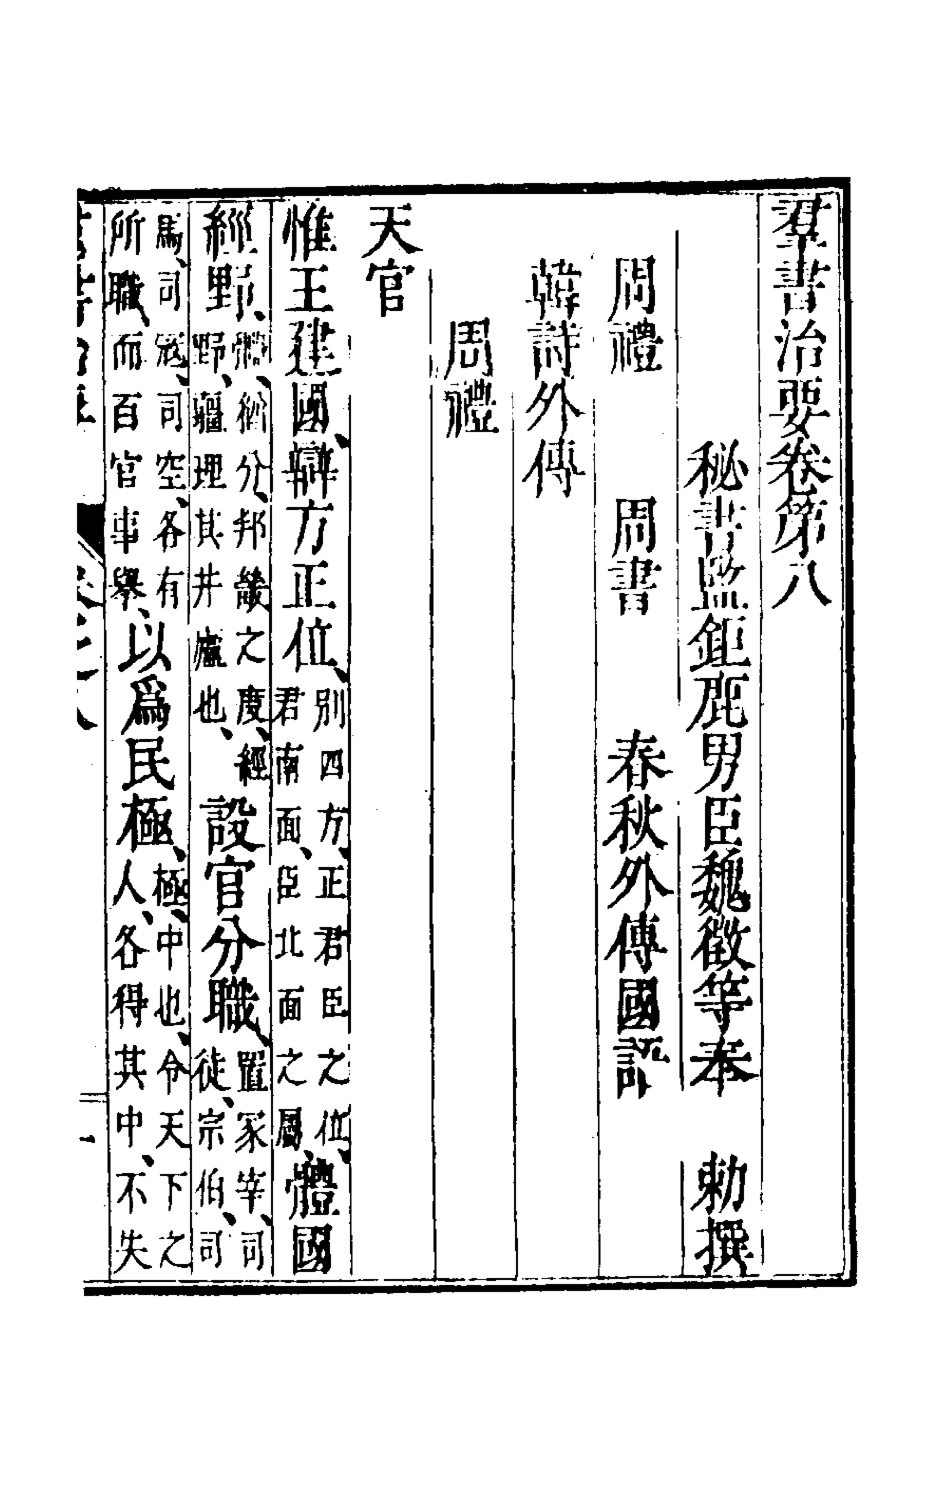 羣書治要卷第八
秘書監鉅鹿男臣魏徵等奉　勅撰
周禮　周書　春秋外傳國語
韓詩外傳
周禮
天官
惟王建國、辯方正位、別四方、正君臣之位、君南面、臣北面之屬、體國
經野、體、猶分、邦畿之度、經野、疆理其井廬也、設官分職、置冢宰、司徒、宗伯、司
馬、司寇、司空、各有所職、而百官事舉、以爲民極、極、中也、令天下之人、各得其中、不失